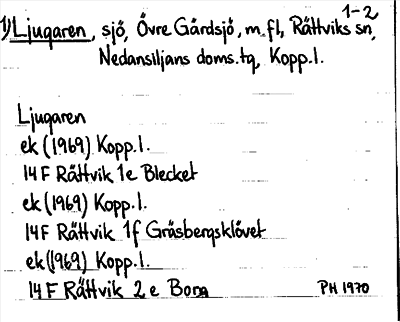 1-2
1) Ljugaren, sjö, Övre Gärdsjö, m.fl, Rättviks sn,
Nedansiljans doms.tg, Kopp.l.
Ljugaren
ek (1969) Kopp.l.
14 F Rättvik 1e Blecket
ek (1969) Kopp.l.
14F Rättvik 1f Gräsbergsklövet
ek (1969) Kopp.l.
14 F Rättvik 2 e Born
PH 1970